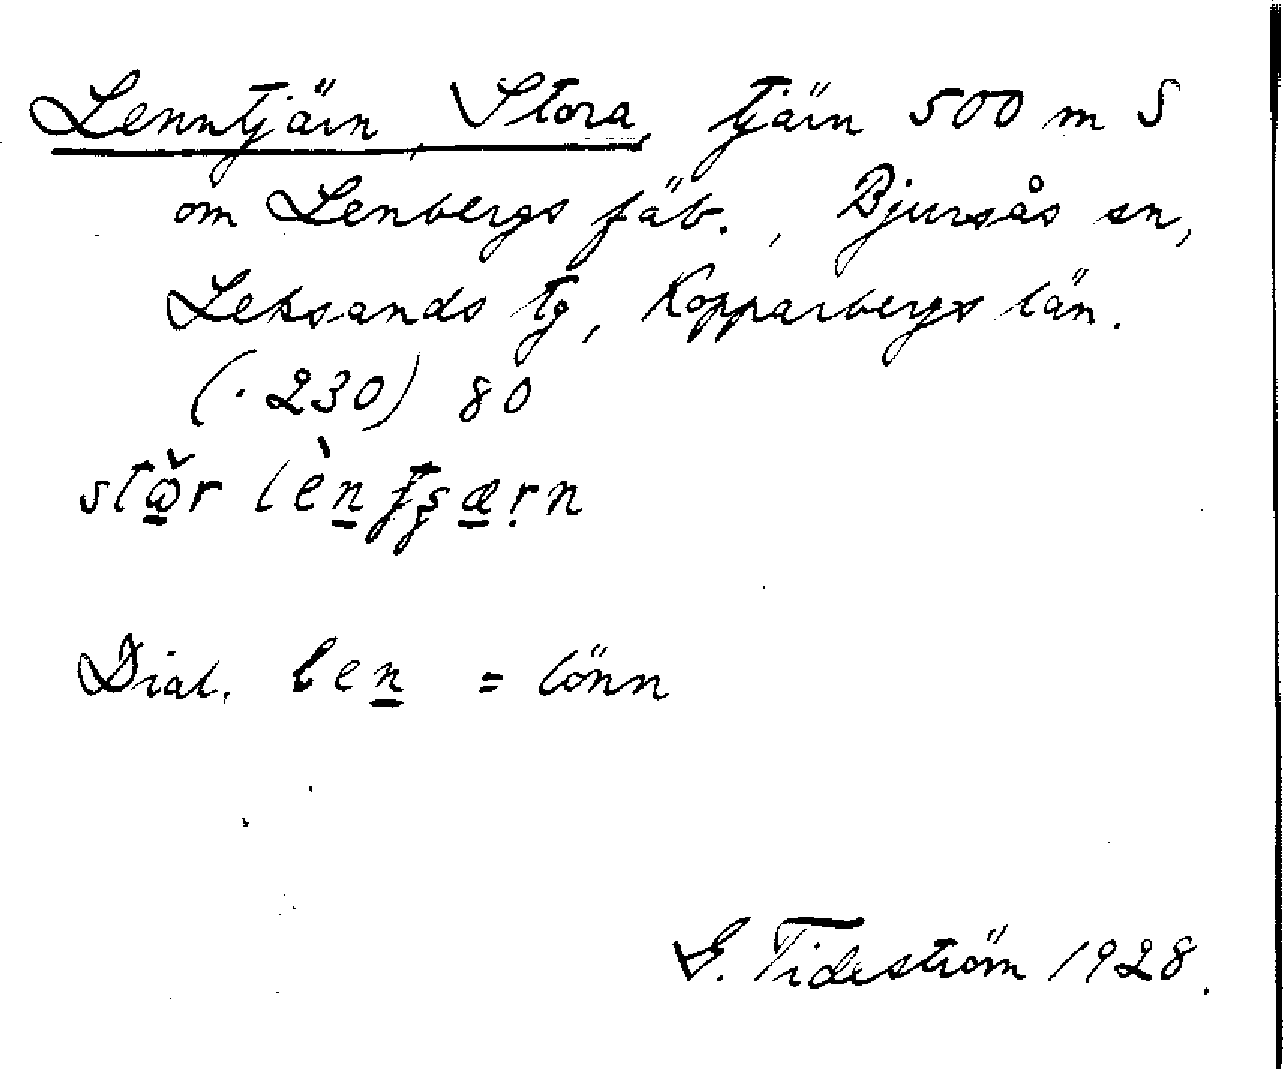 Lenntjärn, Stora, tjärn 500 m S
om Lenbergs fäb., Bjursås sn,
Leksands tg, Kopparbergs län.
(·230) 80
Dial. len̲ = lönn
G. Tideström 1928.